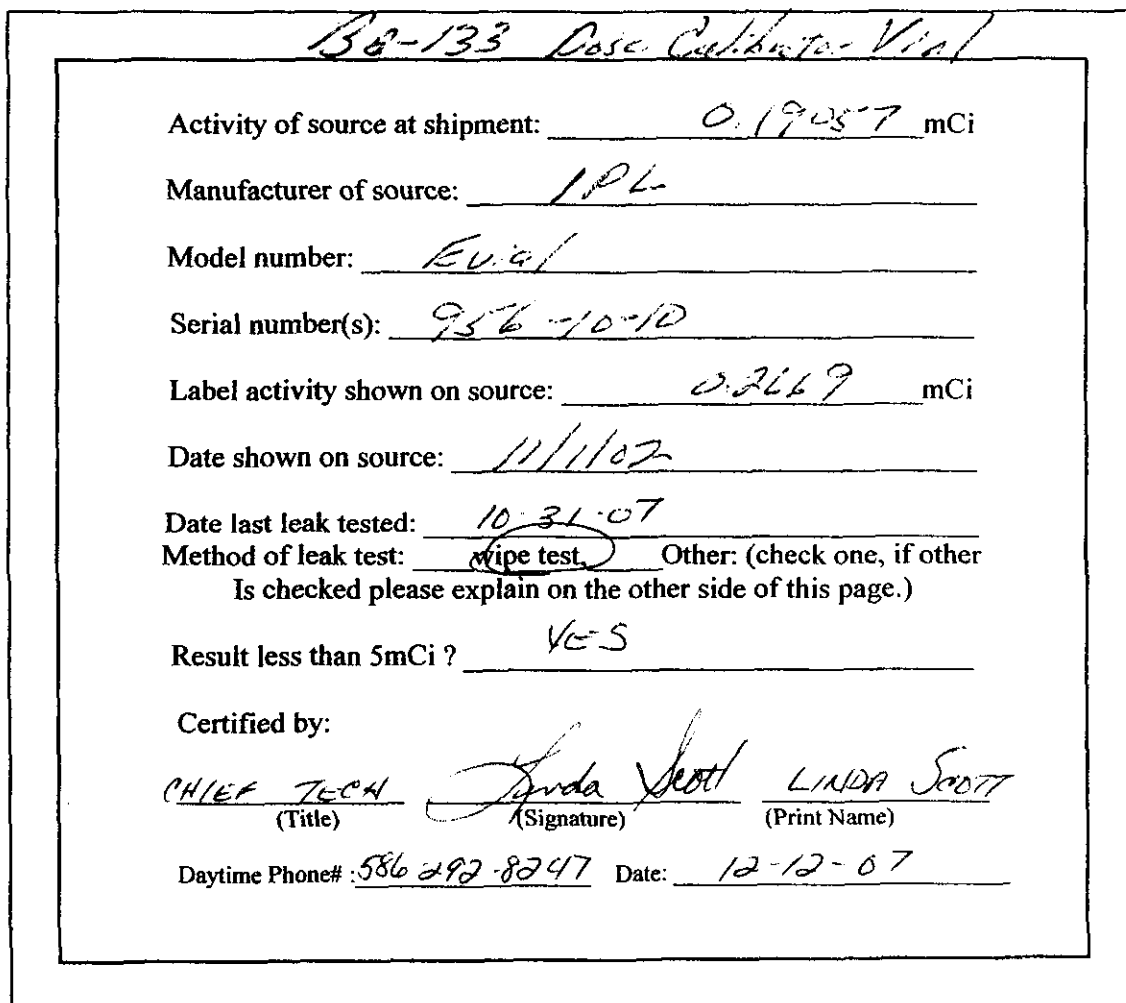 Ba-133 Dose Calibrator Vial
Activity of source at shipment: 0.19057 mCi
Manufacturer of source: IPL
Model number: Evial
Serial number(s): 956-10-10
Label activity shown on source: 0.2669 mCi
Date shown on source: 11/1/02
Date last leak tested: 10-31-07
Method of leak test: wipe test, Other: (check one, if other
Is checked please explain on the other side of this page.)
Result less than 5mCi ? YES
Certified by:
CHIEF TECH Linda Scott LINDA SCOTT
(Title) (Signature) (Print Name)
Daytime Phone# : 586-292-8247 Date: 12-12-07